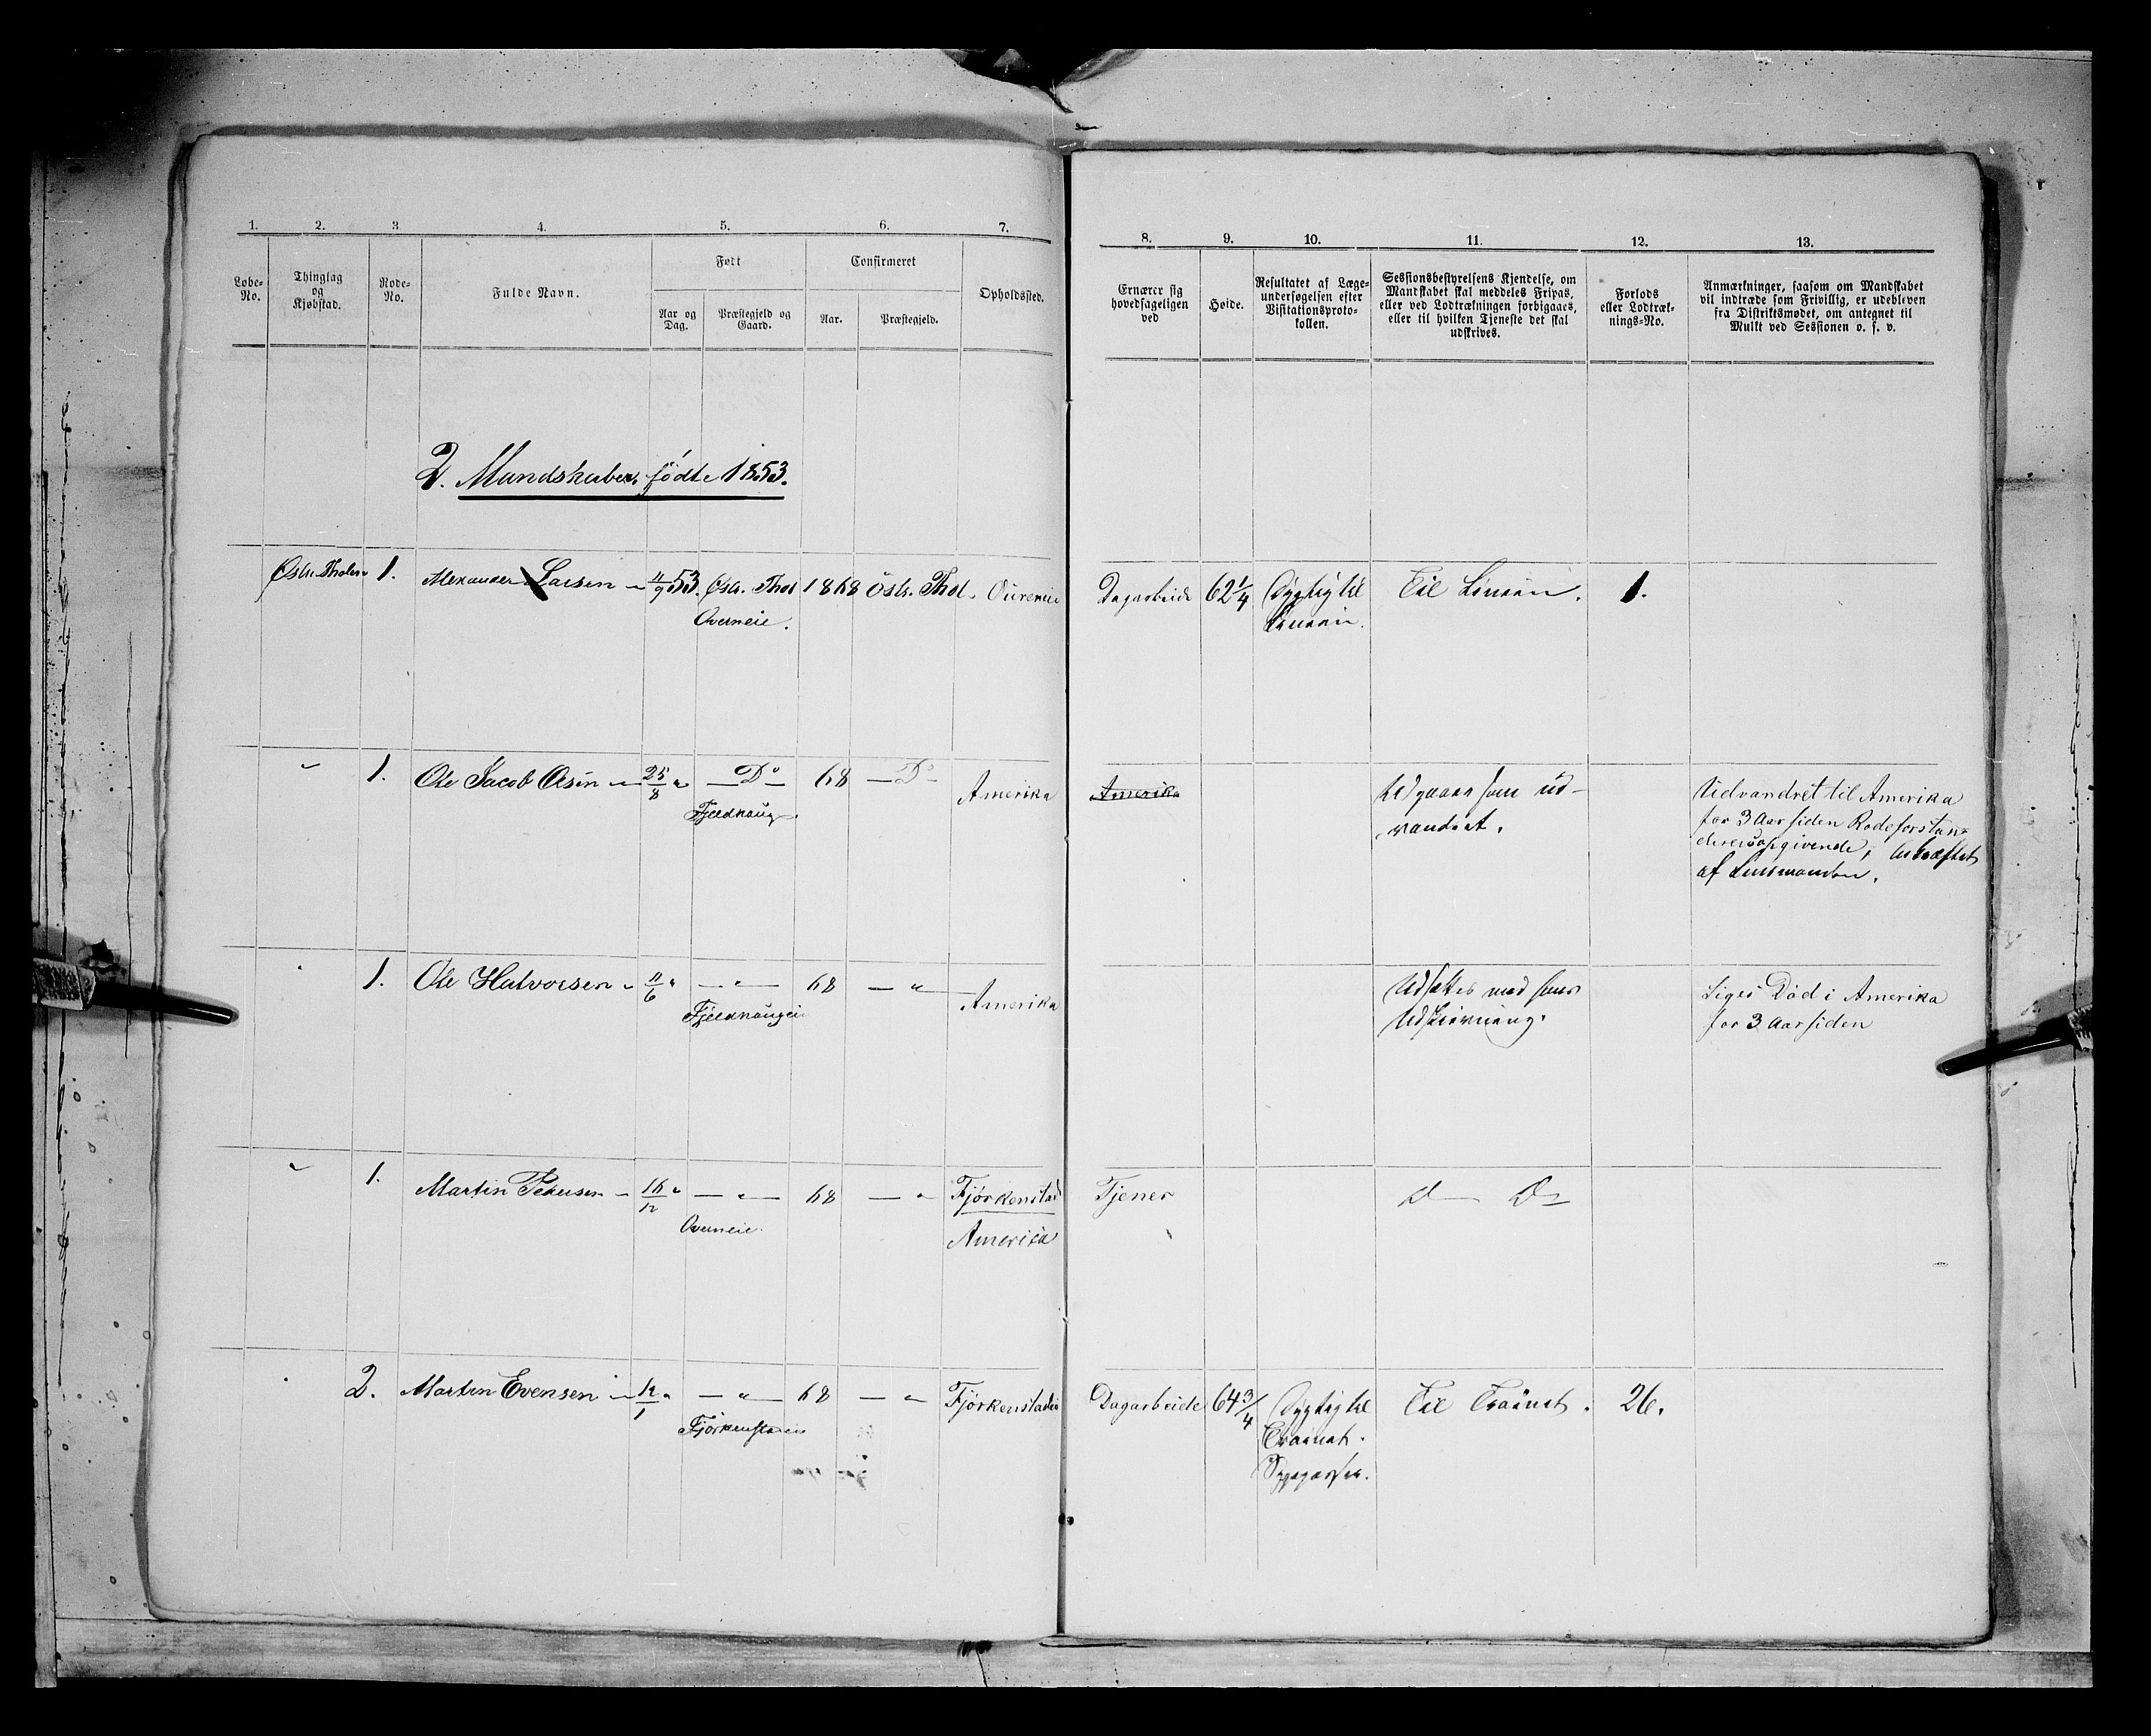 1. 2. 3 4. 5. 6. 7.
Løbe-No. Thinglag og Kjøbstad. Rode-No. Fulde Navn. Født Confirmeret Opholdssted.
Aar og Dag. Præstegjeld og Gaard. Aar. Præstegjeld.
8. 9. 10. 11. 12. 13.
Ernærer sig hovedsageligen ved
Høide.
Resultatet af Læge-
undersøgelsen efter
Visitationsproto-
kollen.
Sessionsbestyrelsens Kjendelse, om
Mandskabet skal meddeles Fripas,
eller ved Lodtrækningen forbigaaes,
eller til hvilken Tjeneste det skal
udskrives.
Forlods
eller Lodtræk-
nings-No.
Anmærkninger, saasom om Mandskabet
vil indtræde som Frivillig, er udebleven
fra Distriktsmødet, om antegnet til
Mulkt ved Sessionen o. s. v.
2. Mandskaber, fødte 1853.
Østr. Tholen 1. Alexander Larsen 11/9 53. Østr. Thol 1868 Östr. Thol.
Overneie.
Dagarbeide 62 1/4 Dygtig til Til Linien. 1.
Linien.
" 1. Ole Jacob Olsen 25/8 " Do 68 Do Amerika
Fjeldhaug.
Amerika Udgaaer som ud- Udvandret til Amerika
vandret. for 3 Aar siden Rodeforstan-
derens opgivende, bekræftet
af Lensmanden.
" 1. Ole Halvorsen 11/6 " " 68 " Amerika
Fjeldhaugeie
Udsættes med hans Siges Död i Amerika
Udskrivning. for 3 Aar siden
" 1. Martin Pedersen 16/12 " " 68 " Fjørkenstad
Overneie. Amerika
Tjener D D
" 2. Martin Evensen 12/1 " " 68 " Fjörkenstadeie
Fjørkenstadeie
Dagarbeide 64 3/4 Dygtig til Til Trainet. 26.
Trainet.